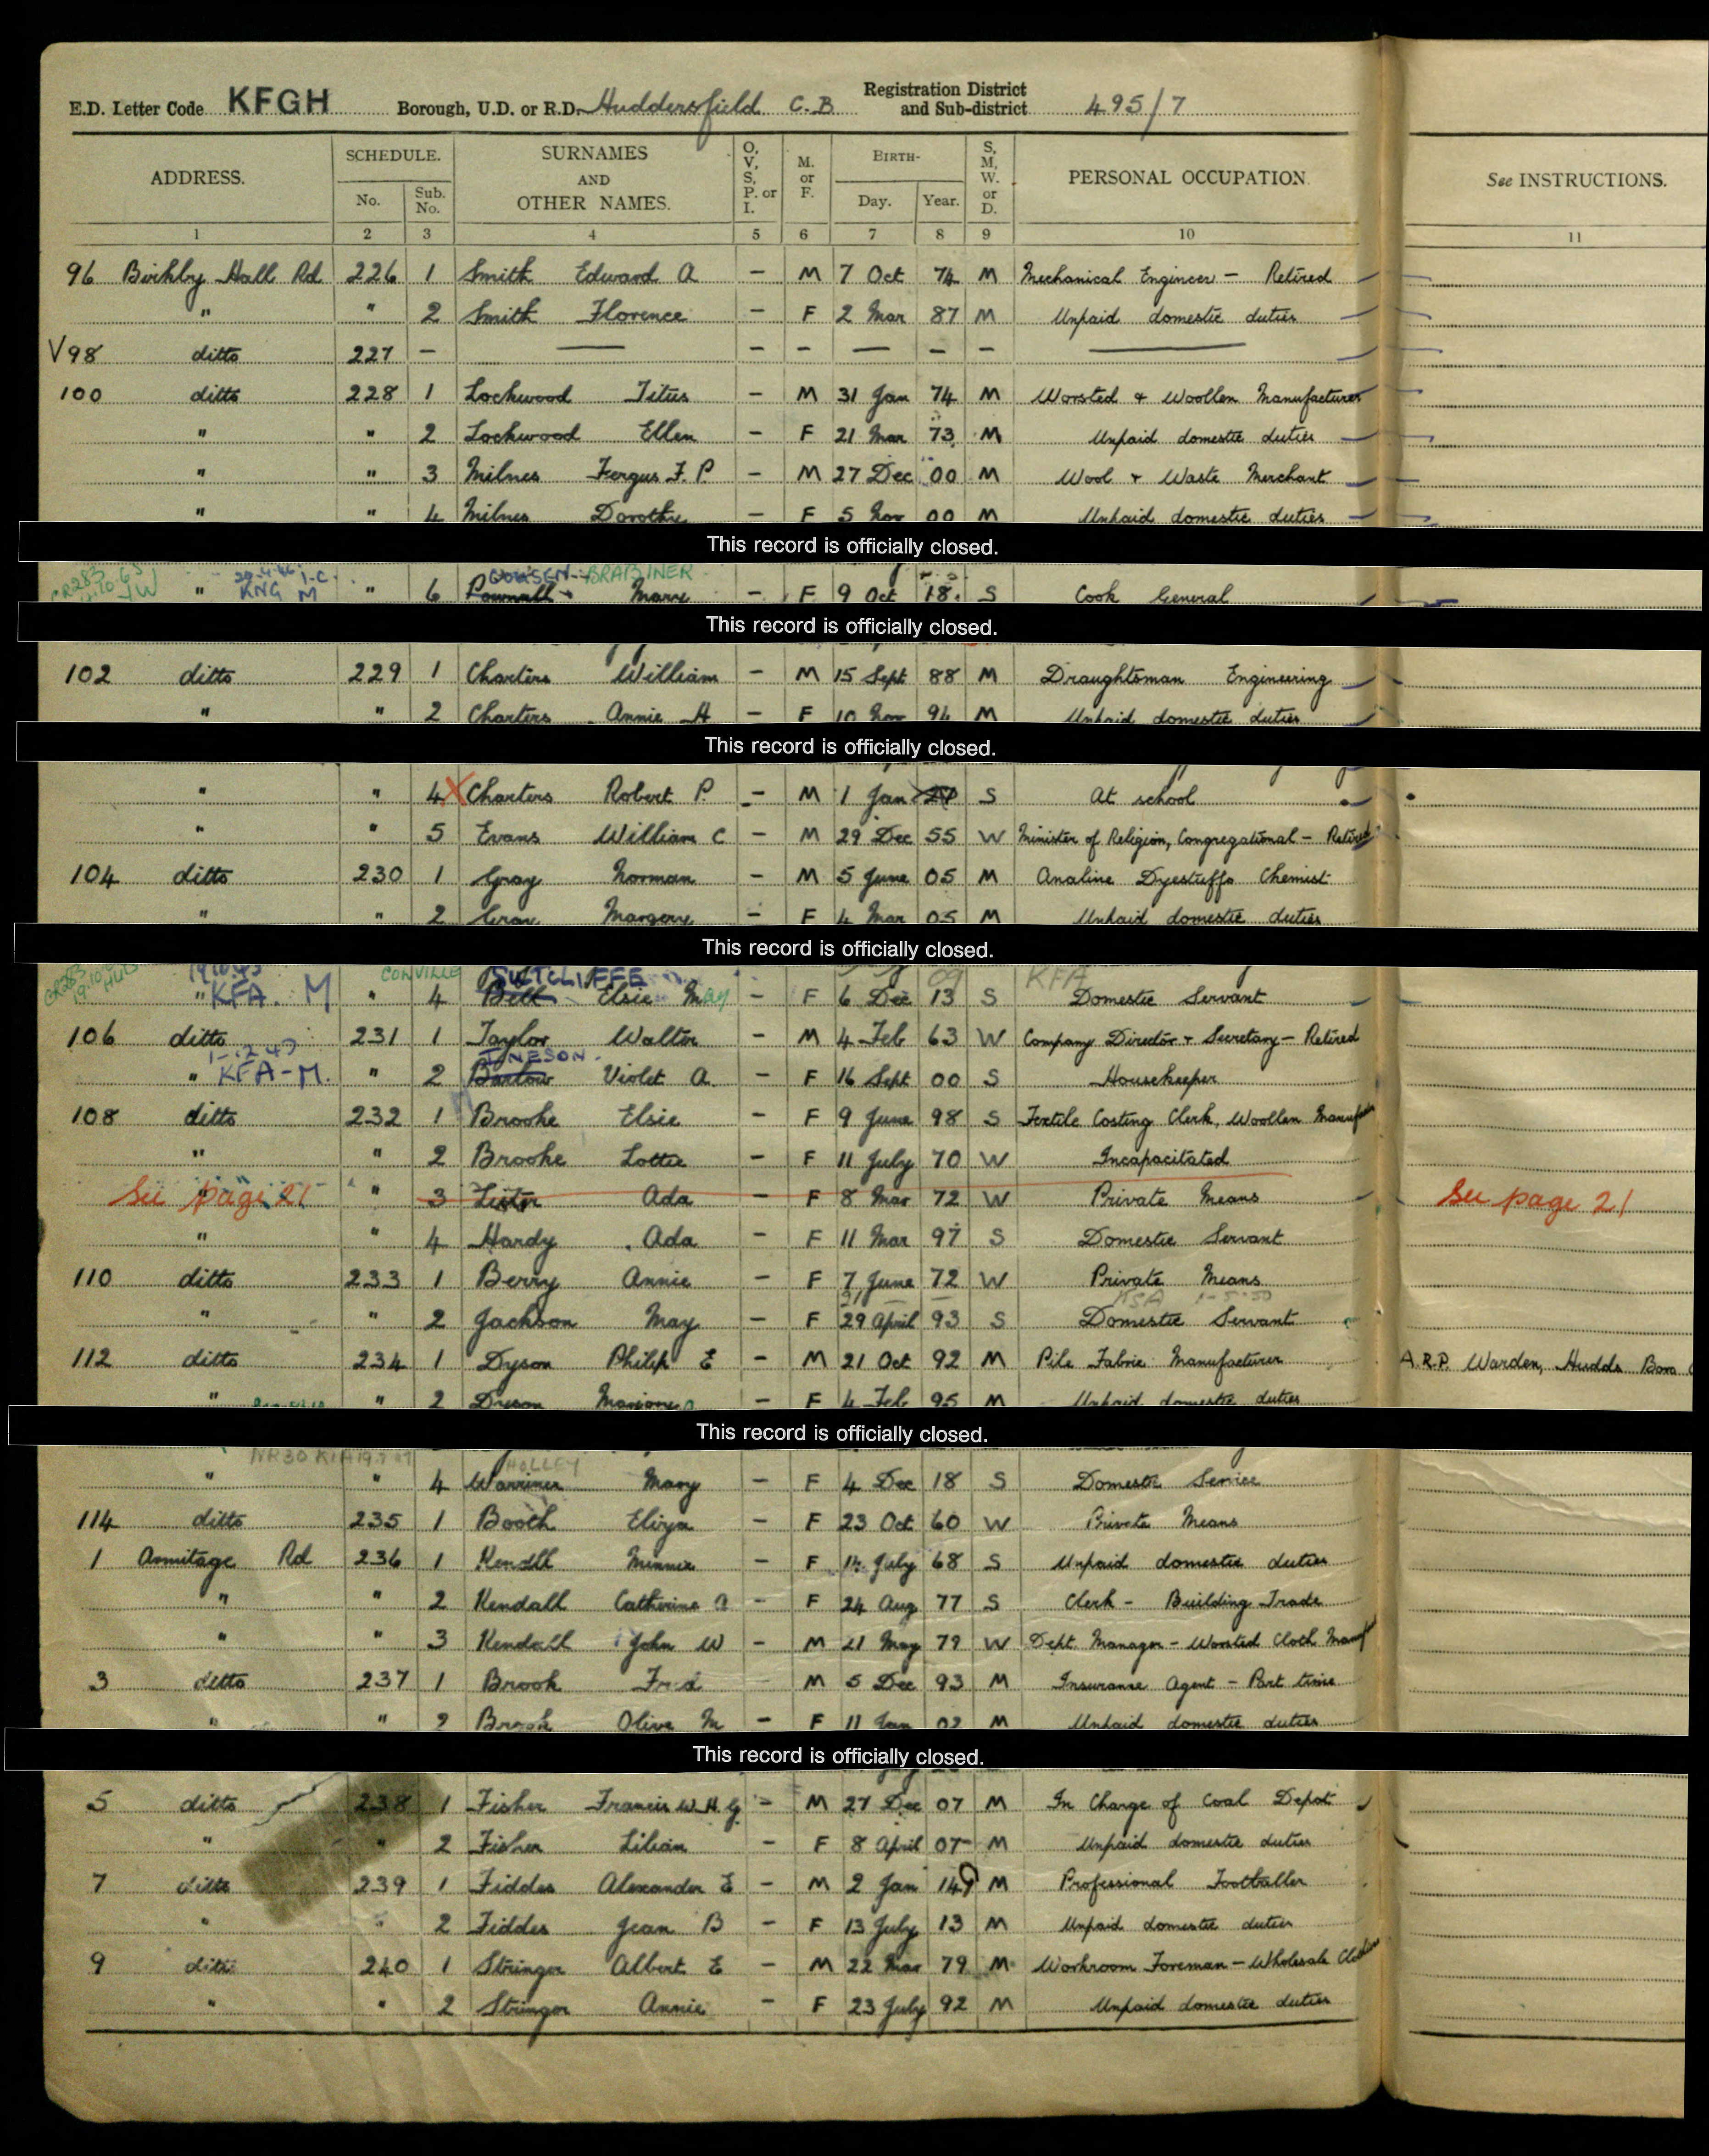 E.D. Letter Code KFGH Borough, U.D. or R.D. Huddersfield C.B Registration District and Sub-district 495/7
ADDRESS. SCHEDULE. No. Sub. No. SURNAMES AND OTHER NAMES. O, V, S, P. or I. M. or F. BIRTH- Day. Year. S, M, W. or D. PERSONAL OCCUPATION See INSTRUCTIONS.
1 2 3 4 5 6 7 8 9 10 11
96 Birkby Hall Rd 226 1 Smith Edward A - M 7 Oct 74 M Mechanical Engineer - Retired
" " 2 Smith Florence - F 2 Mar 87 M Unpaid domestic duties
V98 ditto 227 - — - - — - - —
100 ditto 228 1 Lockwood Titus - M 31 Jan 74 M Worsted & Woollen Manufacturer
" " 2 Lockwood Ellen - F 21 Mar 73 M Unpaid domestic duties
" " 3 Milnes Fergus F. P - M 27 Dec 00 M Wool & Waste Merchant
" " 4 Milnes Dorothy - F 5 Nov 00 M Unpaid domestic duties
This record is officially closed.
BRABINER
" KNG M " 6 Pownall Mary - F 9 Oct 18 S Cook General
This record is officially closed.
102 ditto 229 1 Charters William - M 15 Sept 88 M Draughtsman Engineering
" " 2 Charters Annie H - F 10 Nov 94 M Unpaid domestic duties
This record is officially closed.
" " 4 Charters Robert P. - M 1 Jan S At school
" " 5 Evans William C - M 29 Dec 55 W Minister of Religion, Congregational - Retired
104 ditto 230 1 Gray Norman - M 5 June 05 M Analine Dyestuffs Chemist
" " 2 Gray Margery - F 4 Mar 05 M Unpaid domestic duties
This record is officially closed.
CONVILLE SUTCLIFFE KFA
" KFA. M " 4 Bell Elsie May - F 6 Dec 13 S Domestic Servant
106 ditto 231 1 Taylor Walter - M 4 Feb 63 W Company Director & Secretary - Retired
INESON
" KFA-M. " 2 Barlow Violet A. - F 16 Sept 00 S Housekeeper
108 ditto 232 1 Brooke Elsie - F 9 June 98 S Textile Costing Clerk, Woollen Manuf
" " 2 Brooke Lottie - F 11 July 70 W Incapacitated
See page 21 " 3 Lister Ada - F 8 Mar 72 W Private Means See page 21
" " 4 Hardy Ada - F 11 Mar 97 S Domestic Servant
110 ditto 233 1 Berry Annie - F 7 June 72 W Private Means
" " 2 Jackson May - F 29 April 93 S Domestic Servant
112 ditto 234 1 Dyson Philip E - M 21 Oct 92 M Pile Fabric Manufacturer A.R.P. Warden, Hudds Boro
" " 2 Dyson Marjorie - F 4 Feb 95 M Unpaid domestic duties
This record is officially closed.
HOLLEY
" " 4 Warriner Mary - F 4 Dec 18 S Domestic Service
114 ditto 235 1 Booth Eliza - F 23 Oct 60 W Private Means
1 Armitage Rd 236 1 Kendall Minnie - F 14 July 68 S Unpaid domestic duties
" " 2 Kendall Catherine A - F 24 Aug 77 S Clerk - Building Trade
" " 3 Kendall John W - M 21 May 79 W Dept. Manager - Worsted Cloth Manuf
3 ditto 237 1 Brook Fred M 5 Dec 93 M Insurance Agent - Part time
" " 2 Brook Olive M - F 11 Jan 02 M Unpaid domestic duties
This record is officially closed.
5 ditto 238 1 Fisher Francis W. H. G. - M 27 Dec 07 M In Charge of Coal Depot
" " 2 Fisher Lilian - F 8 April 07 M Unpaid domestic duties
7 ditto 239 1 Fiddes Alexander E - M 2 Jan 14 M Professional Footballer
" " 2 Fiddes Jean B - F 13 July 13 M Unpaid domestic duties
9 ditto 240 1 Stringer Albert E - M 22 Mar 79 M Workroom Foreman - Wholesale
" " 2 Stringer Annie - F 23 July 92 M Unpaid domestic duties